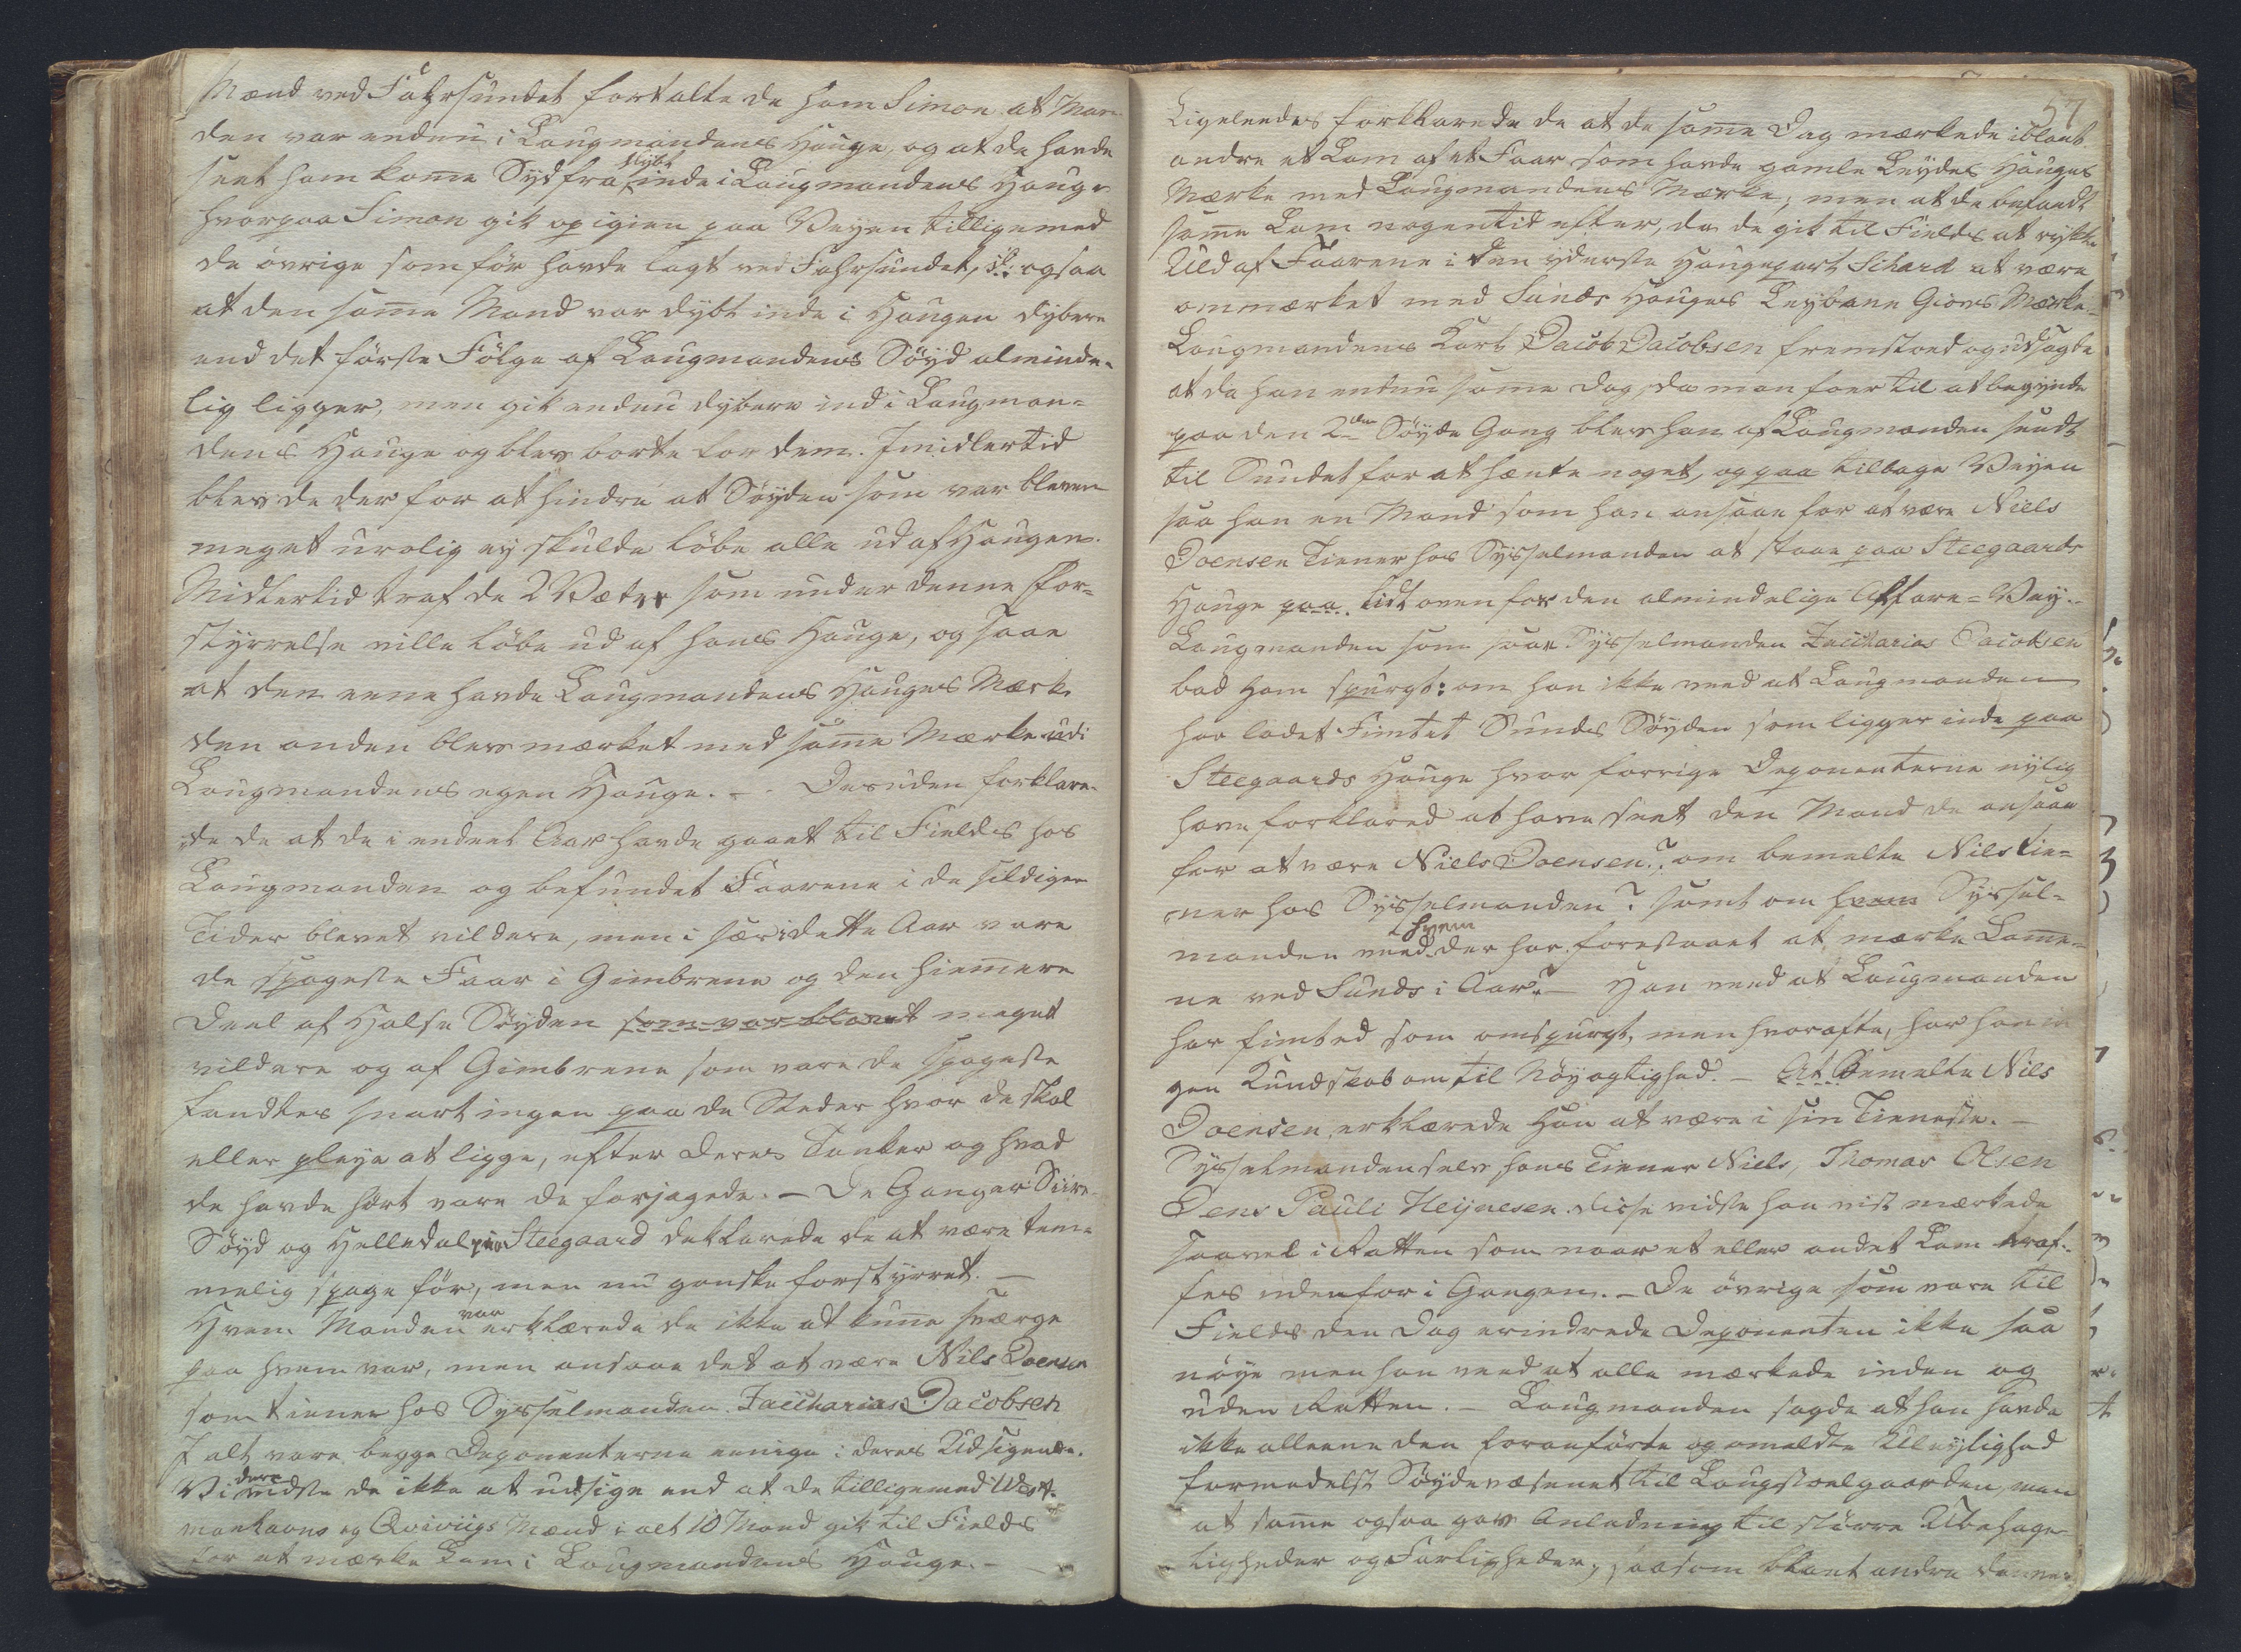 Mænd ved Fahrsundet fortalte de ham Simon at Man-
den var endnu i Laugmandens Hauge, og at de havde
seet ham komme Sydfra dybt inde i Laugmandens Hauge
hvorpaa Simon gik op igien paa Veyen tilligemed
de övrige som för havde lagt ved Fahrsundet, ogsaa
at den samme Mand var dybt inde i Haugen dybere
end det förste Fölge af Laugmandens Söyd alminde-
lig ligger, men gik endnu dybere ind i Laugman-
dens Hauge og blev borte for dem. Imidlertid
blev de der for at hindre at Söyden som var bleven
meget urolig ey skulde löbe alle ud af Haugen.
Midlertid traf de 2 Væder som under denne For-
styrrelse ville löbe ud af hans Hauge, og saae
at den eene havde Laugmandens Hauges Mærke
den anden blev mærket med samme Mærke udi
Laugmandens egen Hauge. - Desuden forklare-
de de at de i endeel Aar havde gaaet til Fields hos
Laugmanden og befundet Faarene i de sildigere
Tider blevet vildere, men i sær i dette Aar vare
de spageste Faar i Gimbrene og den hiemmere
Deel af Halse Söyden som var blevet meget
vildere og af Gimbrene som vare de spageste
fandtes snart ingen paa de Steder hvor de skal
eller pleye at ligge, efter deres Tanker og hvad
de havde hört vare de forjagede. - De Ganger Siire-
Söyd og Helledal paa Steegaard deklarede de at være tem-
melig spage för, men nu ganske forstyrret. -
Hvem Manden var erklærede de ikke at kunne sværge
paa hvem var, men ansaae det at være Nils Joensen
som tiener hos Sysselmanden Zaccharias Jacobsen
I alt vare begge Deponenterne eenige i deres Udsigende.
Videre vidste de ikke at udsige end at de tilligemed West-
manhavns og Qvivigs Mænd i alt 10 Mand gik til Fields
for at mærke Lam i Laugmandens Hauge. -
57
Ligeleedes forklarede de at de samme Dag mærkede iblant
andre et Lam af et Faar som havde gamle Leydes Hauges
Mærke med Laugmandens Mærke, men at de befandt
samme Lam nogentid efter, da de gik til Fields at rykke
Uld af Faarene i den yderste Haugepart Schard at være
ommærket med Sunds Hauges Leybane Giovs Mærke.
Laugmandens Karl Jacob Jacobsen fremstoed og udsagde
at da han endnu samme Dag, da man foer til at begynde
paa den 2den Söyde Gang blev han af Laugmanden sendt
til Sundet for at hænte noget, og paa tilbage Veyen
saa han en Mand som han ansaae for at være Niels
Joensen Tiener hos Sysselmanden at staae paa Steegaards
Hauge paa lidt oven for den almindelige Alfare-Vey.
Laugmanden som saae Sysselmanden Zaccharias Jacobsen
bad ham spurgt: om han ikke veed at Laugmanden
har ladet Fimtet Sunds Söyden som ligger inde paa
Steegaards Hauge hvor forrige Deponenterne nylig
have forklared at have seet den Mand de ansaae
for at være Niels Joensen? om bemelte Nils tie-
ner hos Sysselmanden? samt om hvem Syssel-
manden veed hvem der har forestaaet at mærke Lamme-
ne ved Sunds i Aar? - Han veed at Laugmanden
har fimted som omspurgt, men hvorofte, har han in-
gen Kundskab om til Nöyagtighed. - At Bemelte Nils
Joensen erklærede Han at være i sin Tieneste. -
Sysselmanden selv hans Tiener Niels, Thomas Olsen
Jens Pauli Heijnesen disse vidste han vist mærkede
saavel i Ratten som naar et eller andet Lam traf-
fes udenfor i Gangen. - De övrige som vare til
Fields den Dag erindrede Deponenten ikke saa
nöye men han veed at alle mærkede inden og
uden Ratten. - Laugmanden sagde at han havde
ikke alleene den foranförte og anmeldte Uleylighed
formedelst Söydevæsenet til Laugstoelgaarden, men
at samme ogsaa gav Anledning til större Ubehage-
ligheder og Farligheder, saasom blant andre denne